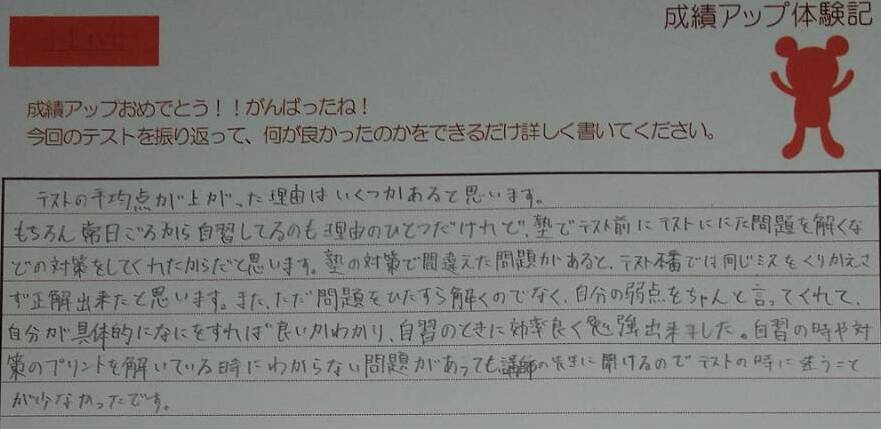 成績アップ体験記
成績アップおめでとう！！がんばったね！
今回のテストを振り返って、何が良かったのかをできるだけ詳しく書いてください。
テストの平均点が上がった理由はいくつかあると思います。
もちろん常日ごろから自習してるのも理由のひとつだけれど、塾でテスト前にテストににた問題を解くな
どの対策をしてくれたからだと思います。塾の対策で間違えた問題があると、テスト本番では同じミスをくりかえさ
ず正解出来たと思います。また、ただ問題をひたすら解くのでなく、自分の弱点をちゃんと言ってくれて、
自分が具体的になにをすれば良いかわかり、自習のときに効率良く勉強出来ました。自習の時や対
策のプリントを解いている時にわからない問題があっても講師の先生に聞けるのでテストの時に迷うこと
が少なかったです。